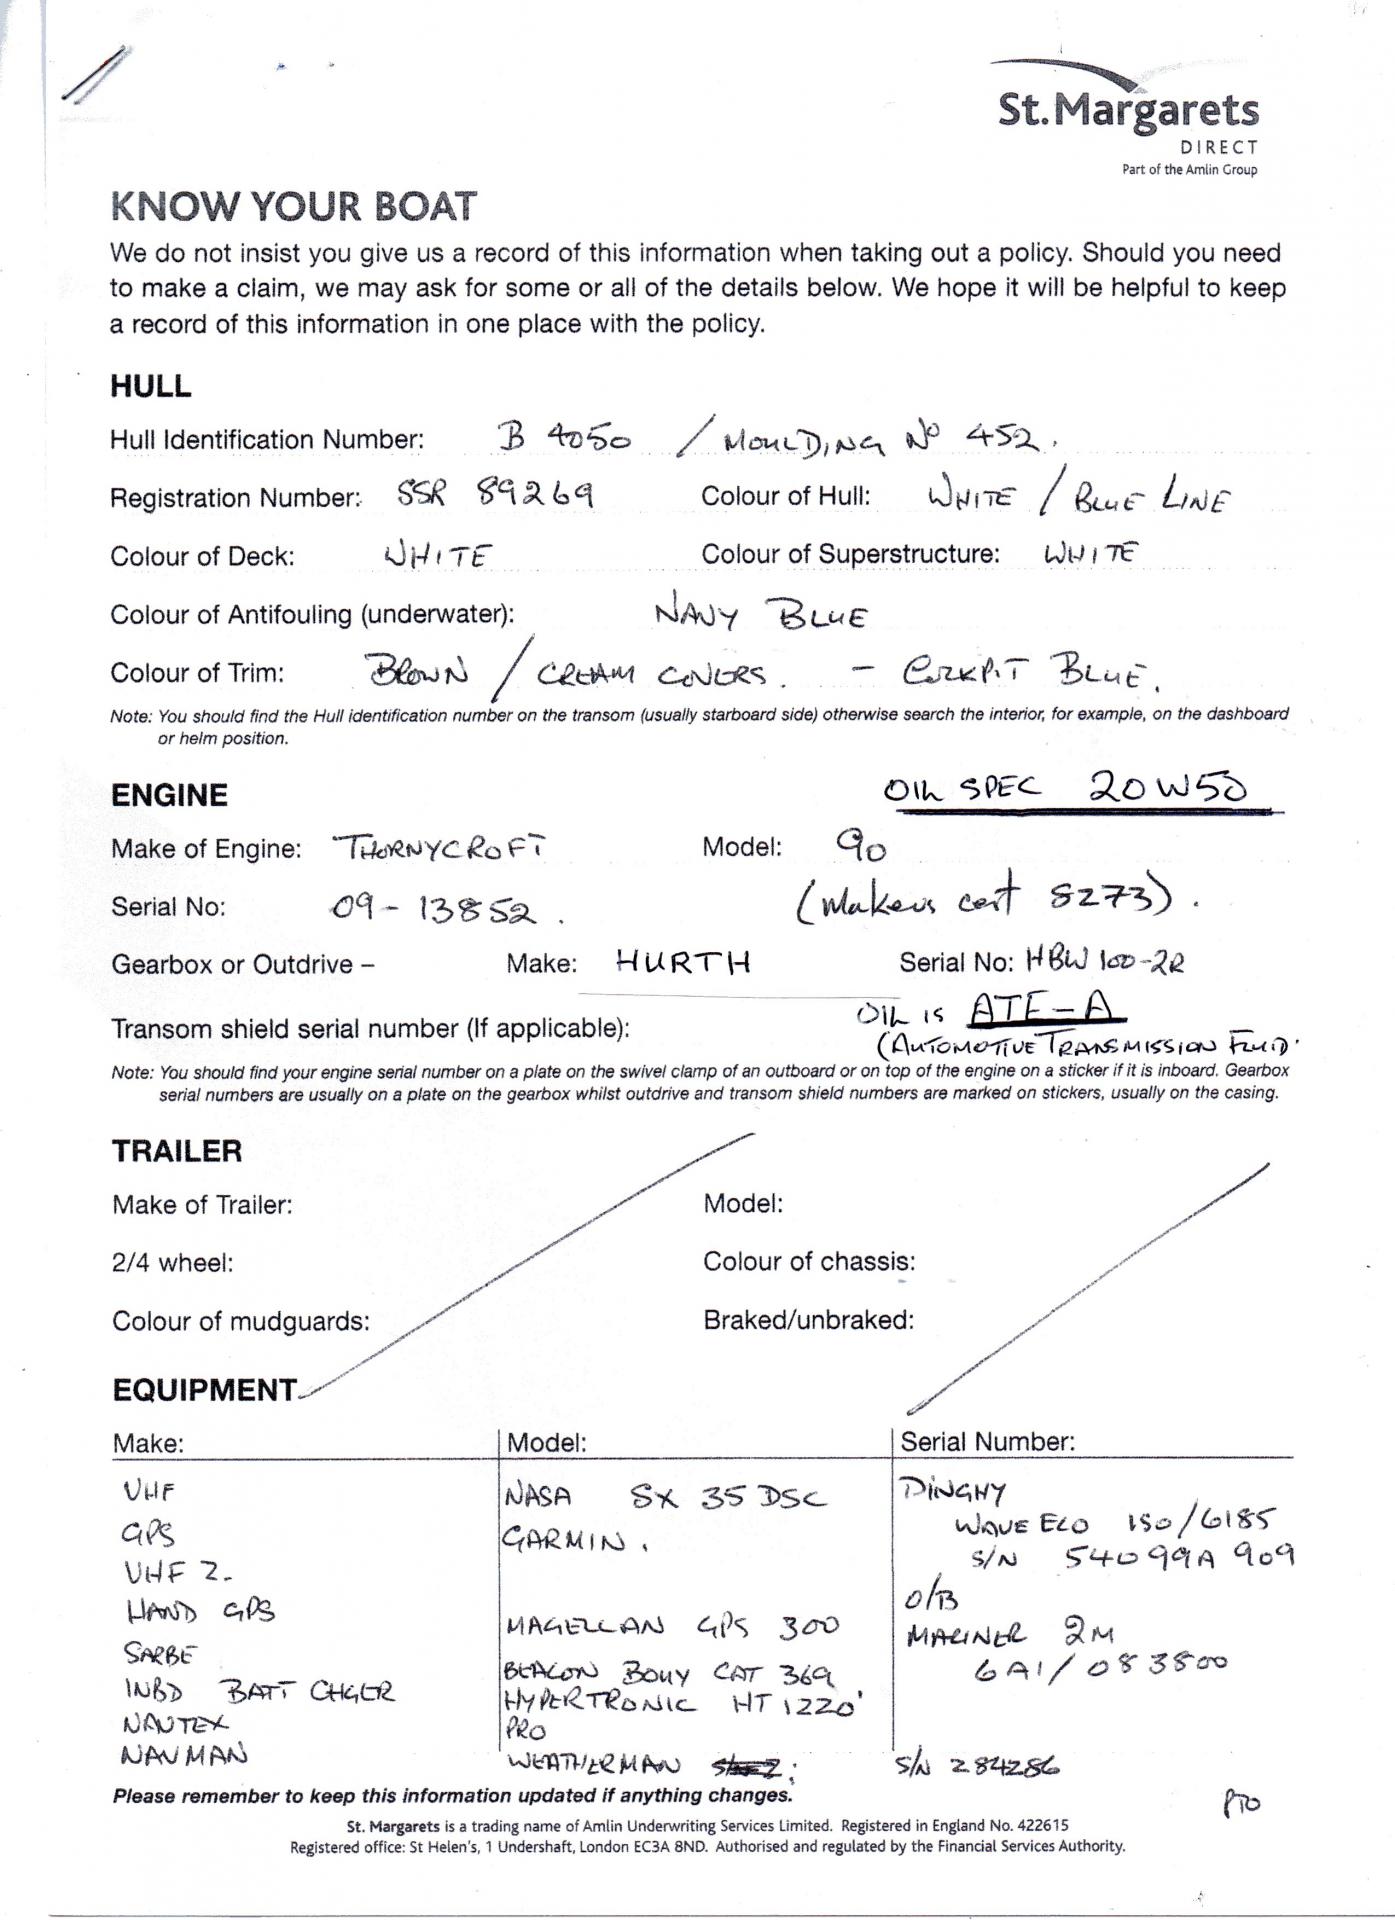 St. Margarets
DIRECT
Part of the Amlin Group
KNOW YOUR BOAT
We do not insist you give us a record of this information when taking out a policy. Should you need
to make a claim, we may ask for some or all of the details below. We hope it will be helpful to keep
a record of this information in one place with the policy.
HULL
Hull Identification Number: B 4050 / MOULDING No 452.
Registration Number: SSR 89269 Colour of Hull: WHITE / BLUE LINE
Colour of Deck: WHITE Colour of Superstructure: WHITE
Colour of Antifouling (underwater): NAVY BLUE
Colour of Trim: BROWN / CREAM COVERS. - COCKPIT BLUE.
Note: You should find the Hull identification number on the transom (usually starboard side) otherwise search the interior, for example, on the dashboard
or helm position.
ENGINE OIL SPEC 20W50
Make of Engine: THORNYCROFT Model: 90
Serial No: 09-13852. (Makers cert 8273).
Gearbox or Outdrive – Make: HURTH Serial No: HBW 100-2R
Transom shield serial number (If applicable): OIL IS ATF-A
(AUTOMOTIVE TRANSMISSION FLUID.
Note: You should find your engine serial number on a plate on the swivel clamp of an outboard or on top of the engine on a sticker if it is inboard. Gearbox
serial numbers are usually on a plate on the gearbox whilst outdrive and transom shield numbers are marked on stickers, usually on the casing.
TRAILER
Make of Trailer: Model:
2/4 wheel: Colour of chassis:
Colour of mudguards: Braked/unbraked:
EQUIPMENT
Make: Model: Serial Number:
VHF NASA SX 35 DSC DINGHY
GPS GARMIN. WAVE ECO ISO/6185
VHF 2- S/N 54099A 909
HAND GPS MAGELLAN GPS 300 O/B
MARINER 2M
SARBE BEACON BOUY CAT 369 6A1/083800
INBD BATT CHGER HYPERTRONIC HT 1220'
NAVTEX PRO
NAVMAN WEATHERMAN S/N 284286
Please remember to keep this information updated if anything changes.
PTO
St. Margarets is a trading name of Amlin Underwriting Services Limited. Registered in England No. 422615
Registered office: St Helen's, 1 Undershaft, London EC3A 8ND. Authorised and regulated by the Financial Services Authority.